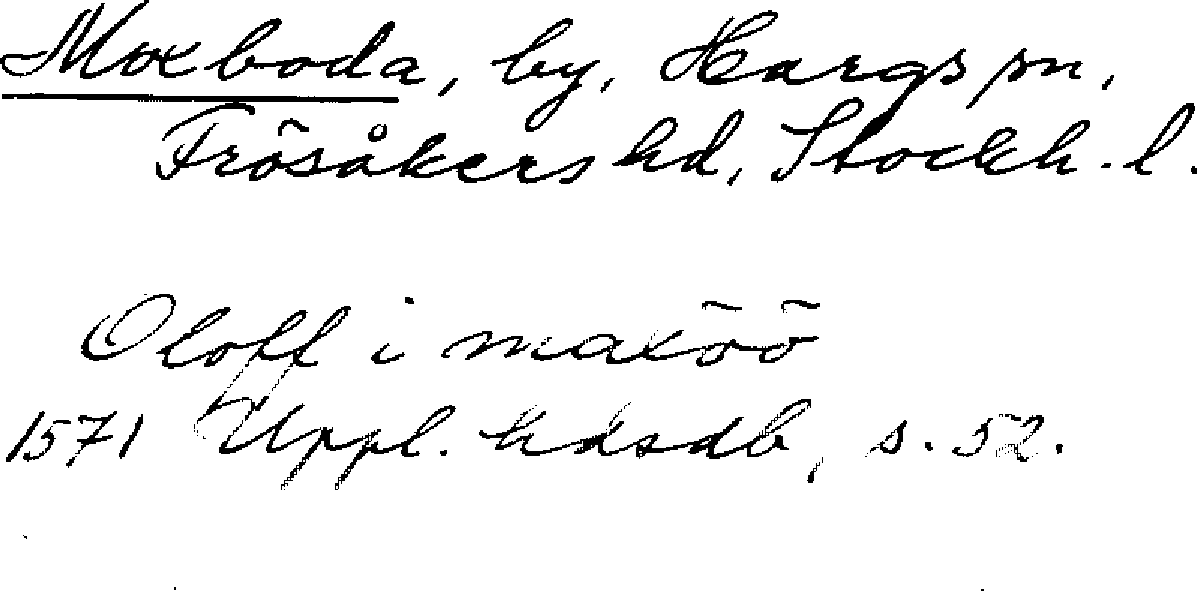 Moxboda, by, Hargs sn,
Frösåkers hd, Stockh. l.
Oloff i maxöö
1571 Uppl. hdsdb, s. 52.